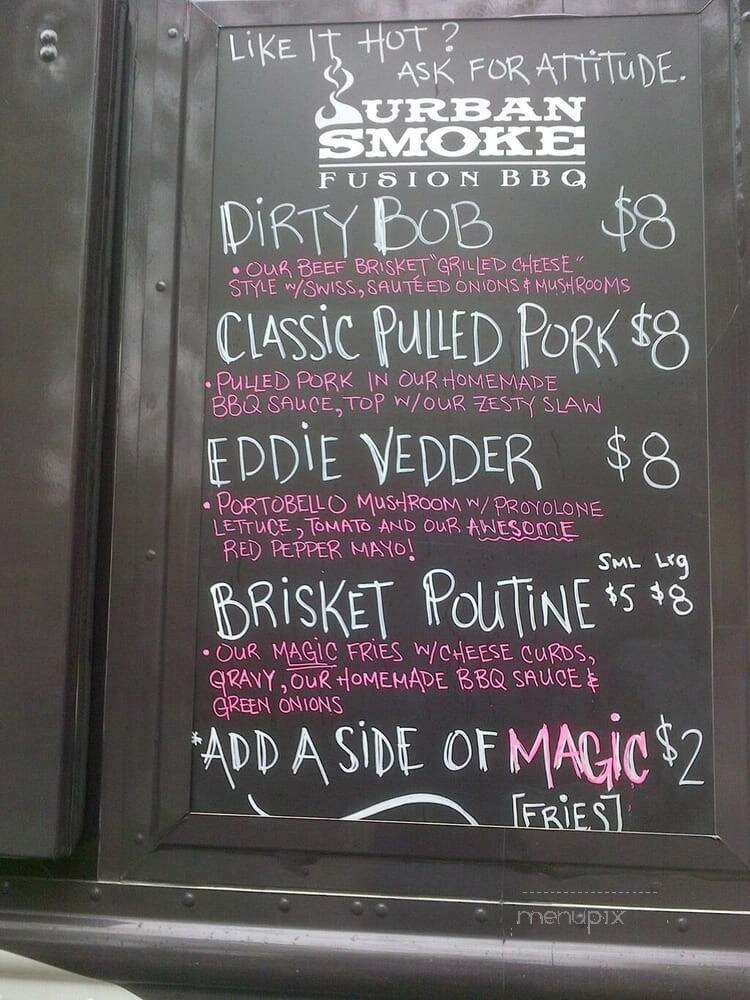 LiKE IT HOT?
ASK FOR ATTiTUDE.
URBAN
SMOKE
FUSION BBQ
DiRTY BOB $8
• OUR BEEF BRISKET "GRILLED CHEESE"
STYLE W/SWISS, SAUTÉED ONIONS & MUSHROOMS
CLASSiC PULLED PORK $8
• PULLED PORK IN OUR HOMEMADE
BBQ SAUCE, TOP W/OUR ZESTY SLAW
EDDiE VEDDER $8
• PORTOBELLO MUSHROOM W/ PROVOLONE
LETTUCE, TOMATO AND OUR AWESOME
RED PEPPER MAYO!
SML Lrg
BRiSKET POUTiNE $5 $8
• OUR MAGIC FRIES W/CHEESE CURDS,
GRAVY, OUR HOMEMADE BBQ SAUCE &
GREEN ONIONS
*ADD A SiDE OF MAGiC $2
[FRiES]
menupix